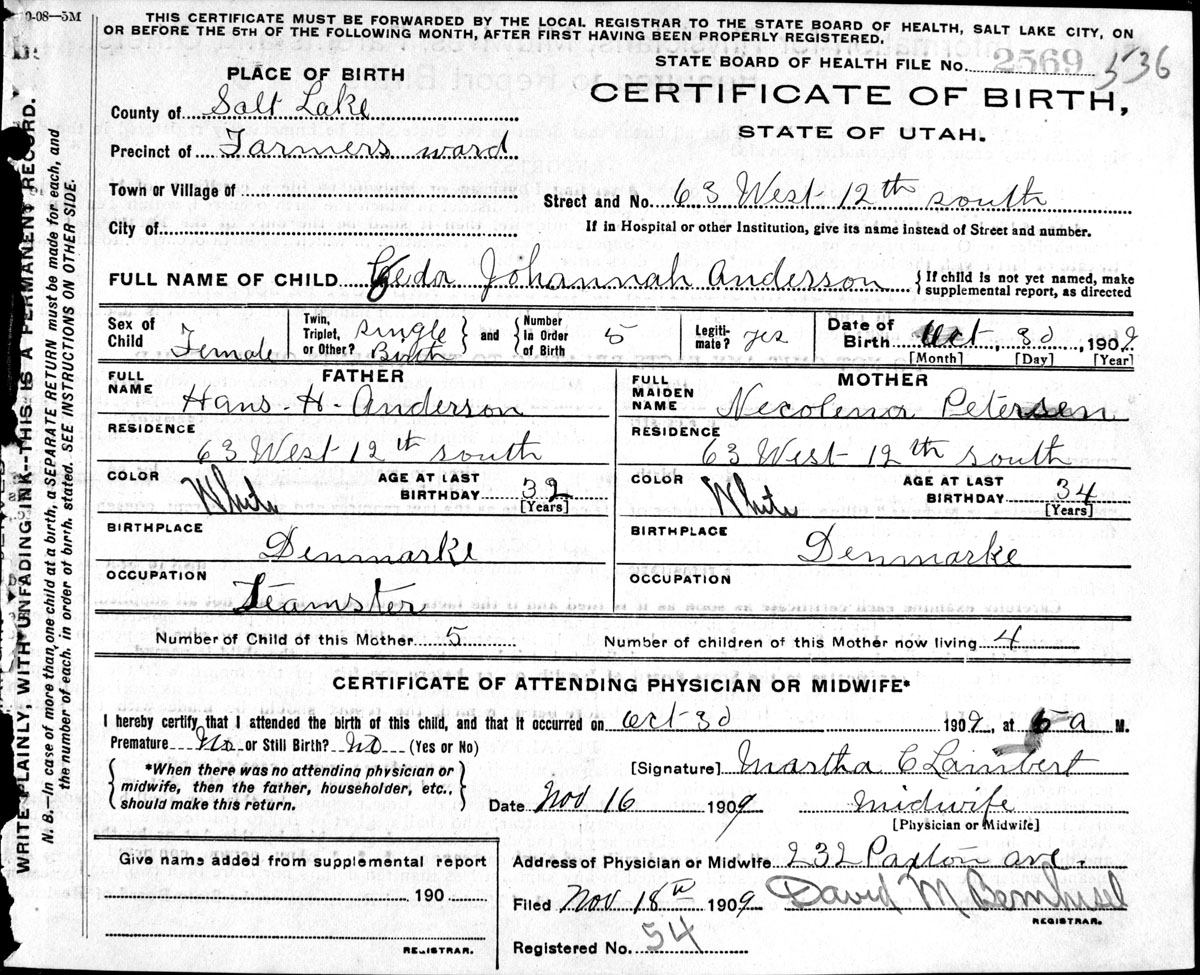 0-08—5M
THIS CERTIFICATE MUST BE FORWARDED BY THE LOCAL REGISTRAR TO THE STATE BOARD OF HEALTH, SALT LAKE CITY, ON
OR BEFORE THE 5TH OF THE FOLLOWING MONTH, AFTER FIRST HAVING BEEN PROPERLY REGISTERED.
STATE BOARD OF HEALTH FILE No. 2569 536
PLACE OF BIRTH
CERTIFICATE OF BIRTH,
STATE OF UTAH.
County of Salt Lake
Precinct of Farmers ward
Town or Village of
Street and No. 63 West 12th south
City of
If in Hospital or other Institution, give its name instead of Street and number.
FULL NAME OF CHILD Johannah Anderson {If child is not yet named, make
supplemental report, as directed
Sex of Child Female
Twin, Triplet, or Other? single Birth
and
Number In Order of Birth 5
Legiti-mate? yes
Date of Birth Oct, 3d, 1909
[Month] [Day] [Year]
FATHER
FULL NAME Hans. H. Anderson
RESIDENCE
63 West 12th south
COLOR White AGE AT LAST BIRTHDAY 32
[Years]
BIRTHPLACE
Denmarke
OCCUPATION
Teamster
MOTHER
FULL MAIDEN NAME Necolena Petersen
RESIDENCE
63 West 12th south
COLOR White AGE AT LAST BIRTHDAY 34
[Years]
BIRTHPLACE
Denmarke
OCCUPATION
Number of Child of this Mother 5 Number of children of this Mother now living 4
CERTIFICATE OF ATTENDING PHYSICIAN OR MIDWIFE*
I hereby certify that I attended the birth of this child, and that it occurred on Oct 3d 1909, at 5 a M.
Premature No or Still Birth? No (Yes or No)
{*When there was no attending physician or
midwife, then the father, householder, etc.,
should make this return.}
[Signature] Martha C Lambert
Date Nov 16 1909 midwife
[Physician or Midwife]
Give name added from supplemental report
190
REGISTRAR.
Address of Physician or Midwife 232 Paxton ave.
Filed Nov 18th 1909 David M Bernhisel
REGISTRAR.
Registered No. 54
WRITE PLAINLY, WITH UNFADING INK—THIS IS A PERMANENT RECORD.
N. B.—In case of more than one child at a birth, a SEPARATE RETURN must be made for each, and
the number of each, in order of birth, stated. SEE INSTRUCTIONS ON OTHER SIDE.